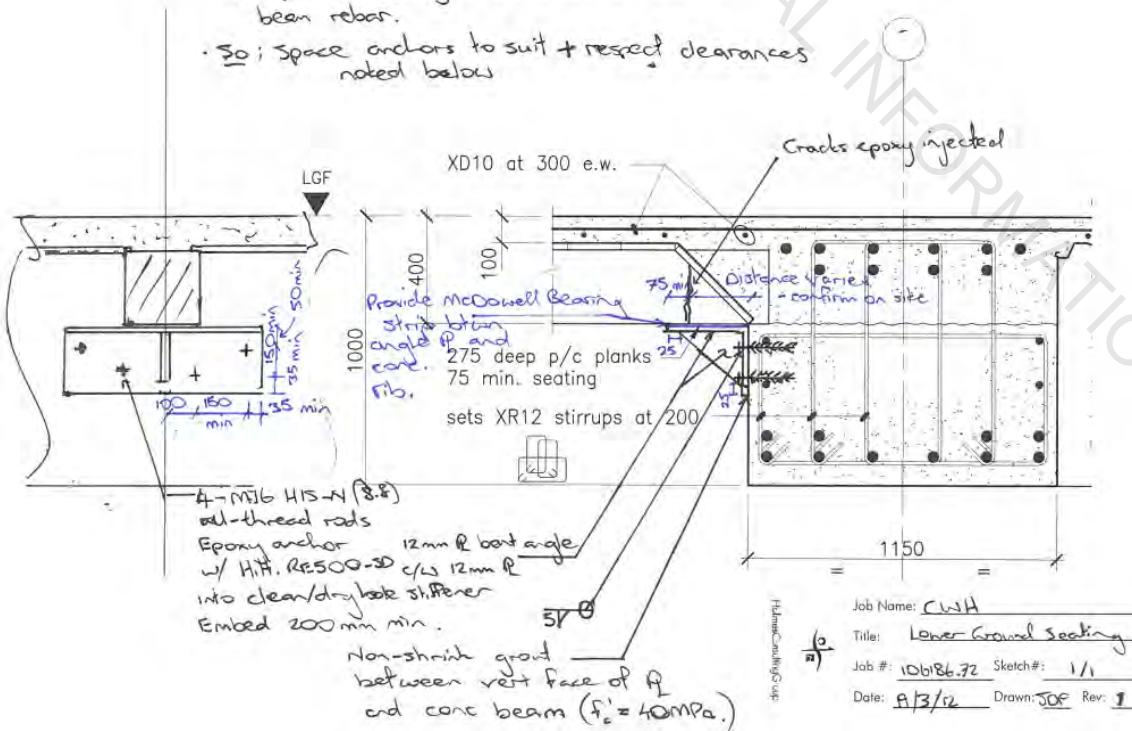 been rebar.
· So; Space anchors to suit + respect clearances
noted below
AL INFORMATIO
Cracks epoxy injected
XD10 at 300 e.w.
LGF
400
100
1000
75 min
Distance varies
- confirm on site
Provide McDowell Bearing
strip btwn
angle PL and
conc.
rib.
25
275 deep p/c planks
75 min. seating
sets XR12 stirrups at 200
25
50min
150min
35 min
100 150
min
35 min
4-M16 HIS-N (8.8)
all-thread rods
Epoxy anchor
w/ Hilti RE500-SD
into clean/dry hole
Embed 200mm min.
12mm PL bent angle
c/w 12mm PL
stiffener
5
Non-shrink grout
between vert face of PL
and conc beam (f'c = 40MPa.)
1150
= =
HolmesConsultingGroup
Job Name: CWH
Title: Lower Ground Seating
Job #: 106186.72 Sketch#: 1/1
Date: /3/12 Drawn: JOP Rev: 1